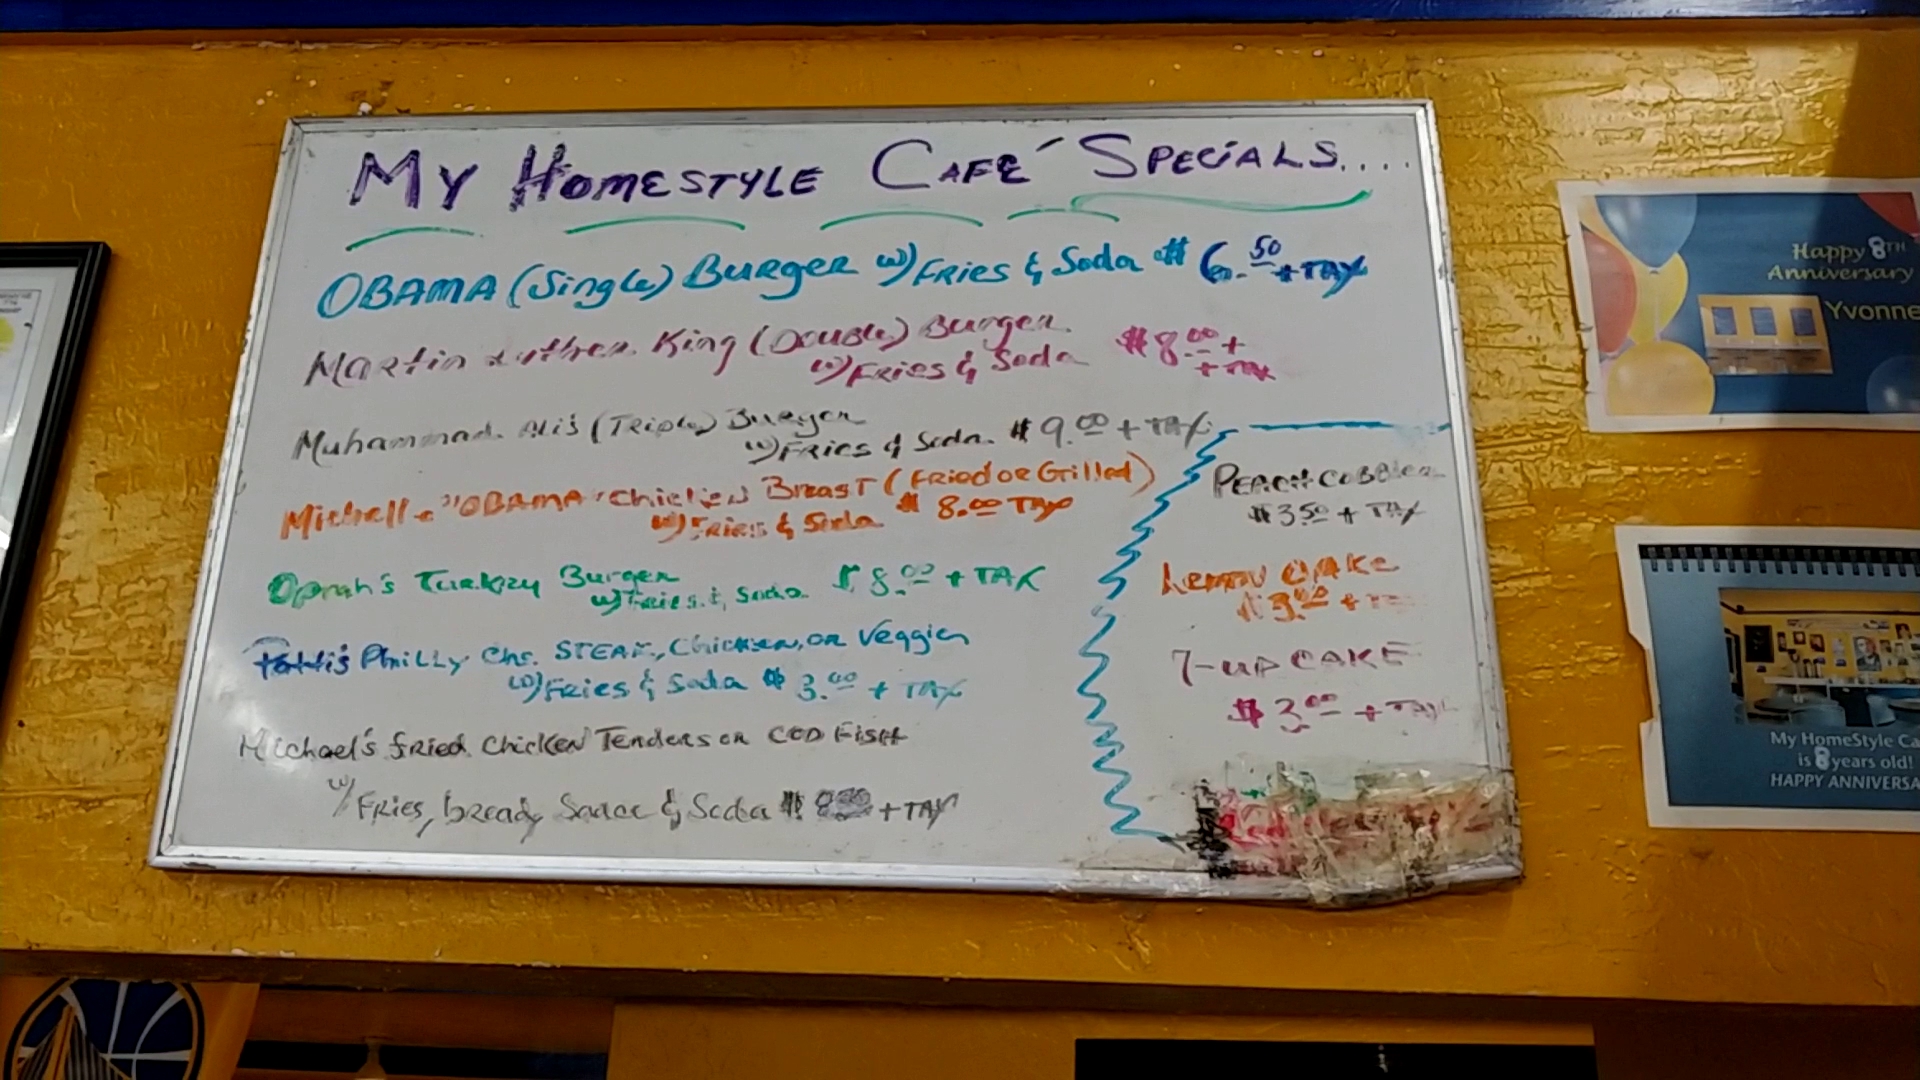 My Homestyle Café Specials....
OBAMA (Single) Burger w/ Fries & Soda $6.50 + TAX
Martin Luther King (Double) Burger
w/ Fries & Soda $8.00 +
+ TAX
Muhammad Ali's (Triple) Burger
w/ Fries & Soda $9.00 + TAX
Michelle "OBAMA" Chicken Breast (Fried or Grilled)
w/ Fries & Soda $8.00 TAX
Oprah's Turkey Burger
w/ Fries & Soda $8.00 + TAX
Philly Chs. STEAK, Chicken, or Veggies
w/ Fries & Soda $3.00 + TAX
Michael's Fried Chicken Tenders or COD FISH
w/ Fries, bread, Sauce & Soda $ + TAX
PEACH COBBLER
$3.50 + TAX
Lemon CAKE
$3.00 +
7-UP CAKE
$3.00 + TAX
Happy 8TH
Anniversary
Yvonne
My HomeStyle Ca
is 8 years old!
HAPPY ANNIVERSA